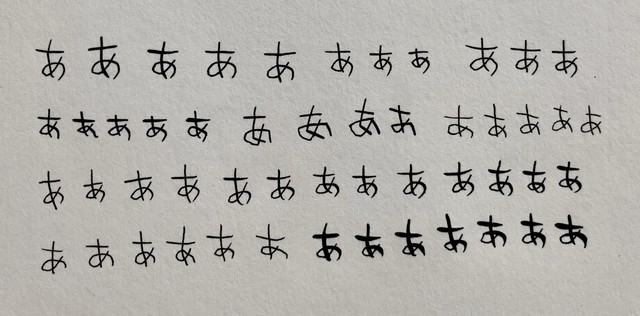 あああああ あああ あああ
あああああ ああああ あああああ
あああああああああああああ
あああああああああああああ